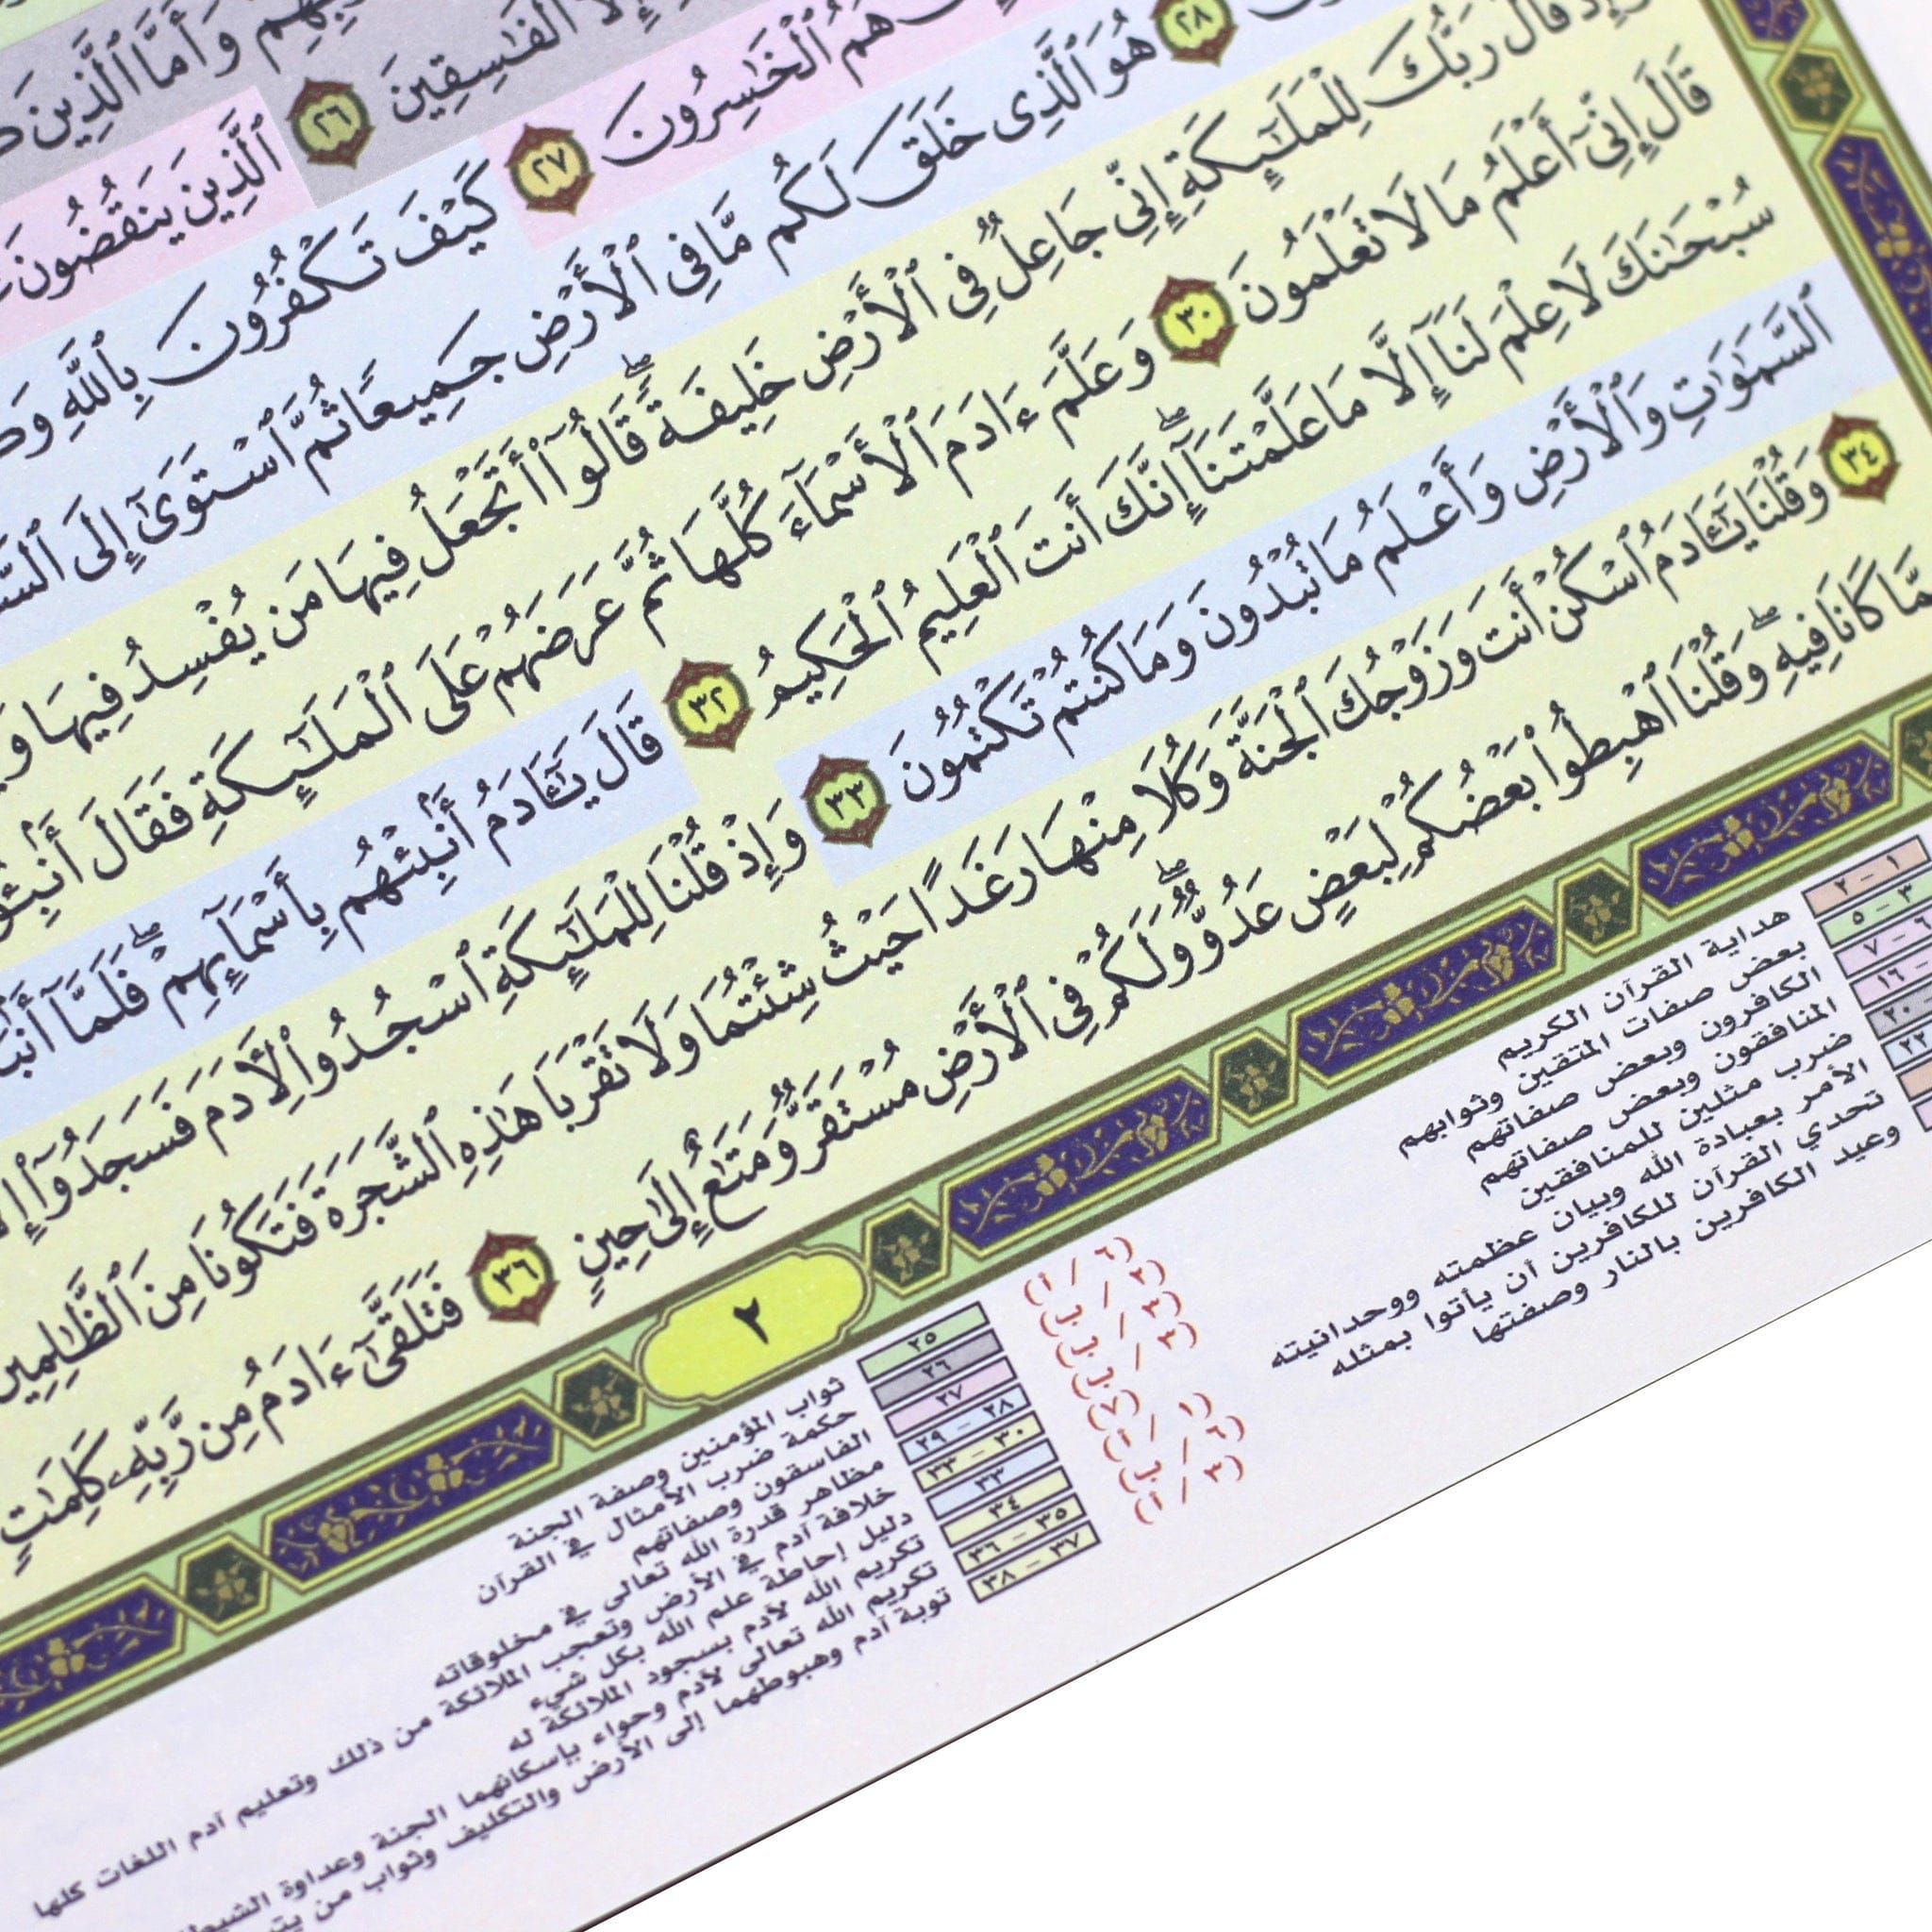 بِهِمْ وَأَمَّا ٱلَّذِينَ
إِلَّا ٱلْفَٰسِقِينَ ٢٦ ٱلَّذِينَ يَنقُضُونَ
هُمُ ٱلْخَٰسِرُونَ ٢٧ كَيْفَ تَكْفُرُونَ بِٱللَّهِ
٢٨ هُوَ ٱلَّذِى خَلَقَ لَكُم مَّا فِى ٱلْأَرْضِ جَمِيعًا ثُمَّ ٱسْتَوَىٰٓ إِلَى
قَالَ رَبُّكَ لِلْمَلَٰٓئِكَةِ إِنِّى جَاعِلٌ فِى ٱلْأَرْضِ خَلِيفَةً ۖ قَالُوٓا۟ أَتَجْعَلُ فِيهَا مَن يُفْسِدُ فِيهَا
قَالَ إِنِّىٓ أَعْلَمُ مَا لَا تَعْلَمُونَ ٣٠ وَعَلَّمَ ءَادَمَ ٱلْأَسْمَآءَ كُلَّهَا ثُمَّ عَرَضَهُمْ عَلَى ٱلْمَلَٰٓئِكَةِ فَقَالَ
سُبْحَٰنَكَ لَا عِلْمَ لَنَآ إِلَّا مَا عَلَّمْتَنَآ ۖ إِنَّكَ أَنتَ ٱلْعَلِيمُ ٱلْحَكِيمُ ٣٢ قَالَ يَٰٓـَٔادَمُ أَنۢبِئْهُم بِأَسْمَآئِهِمْ ۖ فَلَمَّآ
ٱلسَّمَٰوَٰتِ وَٱلْأَرْضِ وَأَعْلَمُ مَا تُبْدُونَ وَمَا كُنتُمْ تَكْتُمُونَ ٣٣ وَإِذْ قُلْنَا لِلْمَلَٰٓئِكَةِ ٱسْجُدُوا۟ لِـَٔادَمَ فَسَجَدُوٓا۟
٣٤ وَقُلْنَا يَٰٓـَٔادَمُ ٱسْكُنْ أَنتَ وَزَوْجُكَ ٱلْجَنَّةَ وَكُلَا مِنْهَا رَغَدًا حَيْثُ شِئْتُمَا وَلَا تَقْرَبَا هَٰذِهِ ٱلشَّجَرَةَ فَتَكُونَا مِنَ ٱلظَّٰلِمِينَ
مِمَّا كَانَا فِيهِ ۖ وَقُلْنَا ٱهْبِطُوا۟ بَعْضُكُمْ لِبَعْضٍ عَدُوٌّ ۖ وَلَكُمْ فِى ٱلْأَرْضِ مُسْتَقَرٌّ وَمَتَٰعٌ إِلَىٰ حِينٍ ٣٦ فَتَلَقَّىٰٓ ءَادَمُ مِن رَّبِّهِۦ كَلِمَٰتٍ
٢
١ - ٢ هداية القرآن الكريم
٣ - ٥ بعض صفات المتقين وثوابهم
٦ - ٧ الكافرون وبعض صفاتهم
- ١٦ المنافقون وبعض صفاتهم
٢٠ ضرب مثلين للمنافقين
٢٢ الأمر بعبادة الله وبيان عظمته ووحدانيته
تحدي القرآن للكافرين أن يأتوا بمثله
وعيد الكافرين بالنار وصفتها
٢٥ ثواب المؤمنين وصفة الجنة
٢٦ حكمة ضرب الأمثال في القرآن
٢٧ الفاسقون وصفاتهم
٢٨ - ٢٩ مظاهر قدرة الله تعالى في مخلوقاته
٣٠ - ٣٣ خلافة آدم في الأرض وتعجب الملائكة من ذلك وتعليم آدم اللغات كلها
٣٣ دليل إحاطة علم الله بكل شيء
٣٤ تكريم الله لآدم بسجود الملائكة له
٣٥ - ٣٦ تكريم الله تعالى لآدم وحواء بإسكانهما الجنة وعداوة
٣٧ - ٣٨ توبة آدم وهبوطهما إلى الأرض والتكليف وثواب من